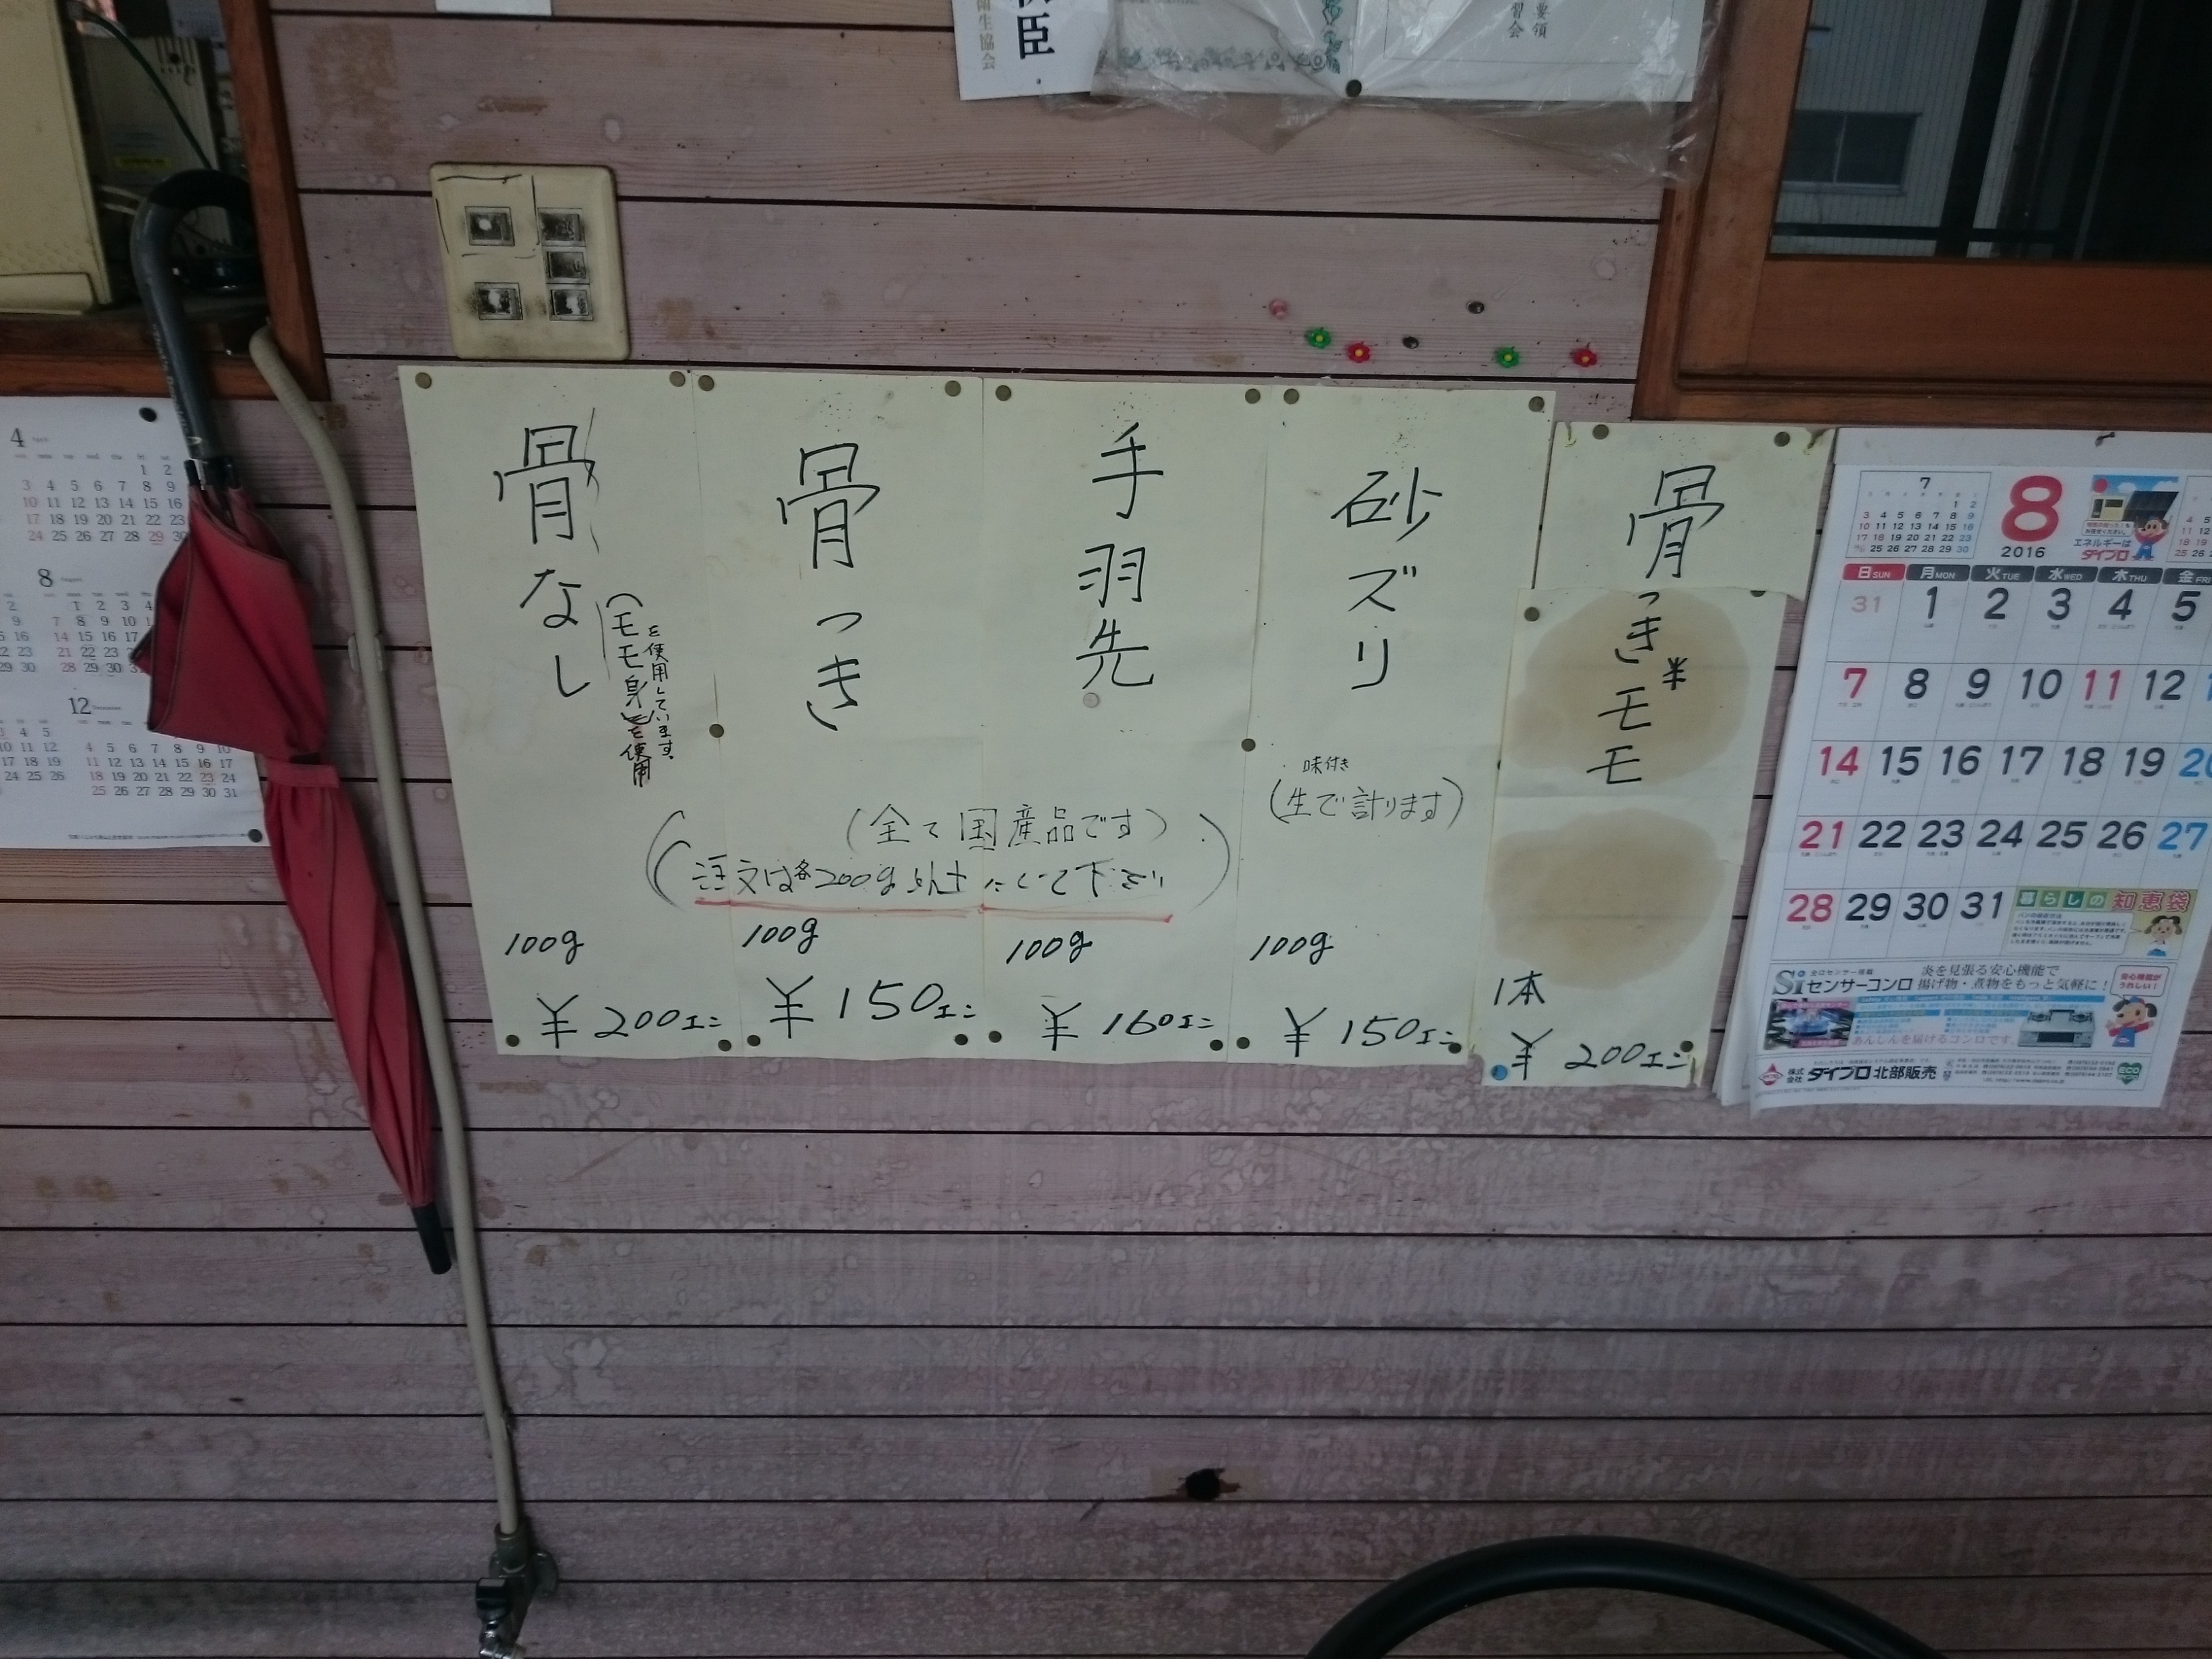 臣
衛生協会
要領
習会
骨なし
(モモ身を使用
を使用しています。
100g
¥200エン
骨つき
100g
¥150エン
手羽先
100g
¥160エン
(全て国産品です)
(注文は各200g以上にして下さい)
砂ズリ
味付き
(生で計ります)
100g
¥150エン
骨つきモモ
半
1本
¥200エン
4
1 2
3 4 5 6 7 8 9
10 11 12 13 14 15 16
17 18 19 20 21 22 23
24 25 26 27 28 29 30
8
1 2 3 4
7 8 9 10 11
14 15 16 17 18
21 22 23 24 25
28 29 30 31
12
4 5 6 7 8 9 10
11 12 13 14 15 16 17
18 19 20 21 22 23 24
25 26 27 28 29 30 31
7
1 2
3 4 5 6 7 8 9
10 11 12 13 14 15 16
17 18 19 20 21 22 23
25 26 27 28 29 30
8
2016
エネルギーは
ダイプロ
日SUN 月MON 火TUE 水WED 木THU 金FRI
31 1 2 3 4 5
7 8 9 10 11 12
14 15 16 17 18 19 20
21 22 23 24 25 26 27
28 29 30 31
暮らしの知恵袋
Si センサーコンロ
炎を見張る安心機能で
揚げ物・煮物をもっと気軽に!
安心機能が
うれしい!
あんしんを届けるコンロです。
株式会社 ダイプロ 北部販売
ECO